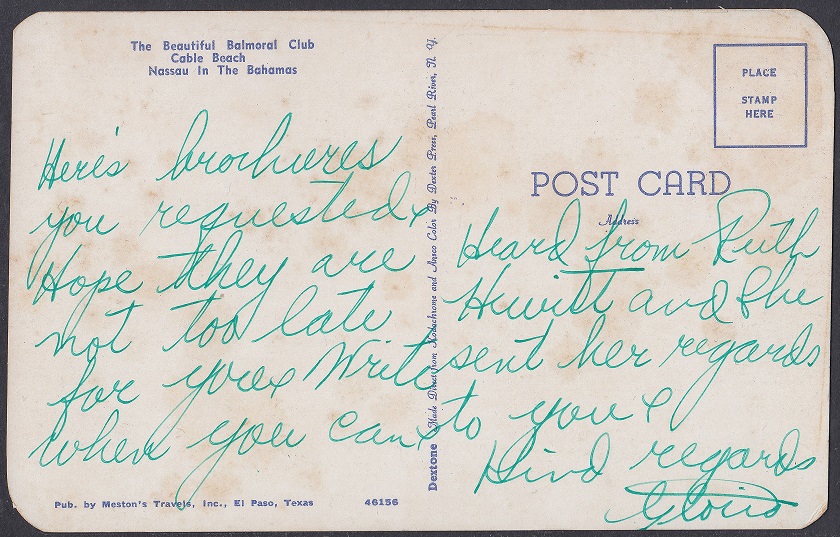 The Beautiful Balmoral Club
Cable Beach
Nassau In The Bahamas
Here's brochures
you requested.
Hope they are
not too late
for you. Write
when you can.
Pub. by Meston's Travels, Inc., El Paso, Texas
46156
Dextone Made Direct from Kodachrome and Ansco Color By Dexter Press, Pearl River, N. Y.
PLACE
STAMP
HERE
POST CARD
Address
Heard from Ruth
Hewitt and She
sent her regards
to you.
Kind regards
Gloria